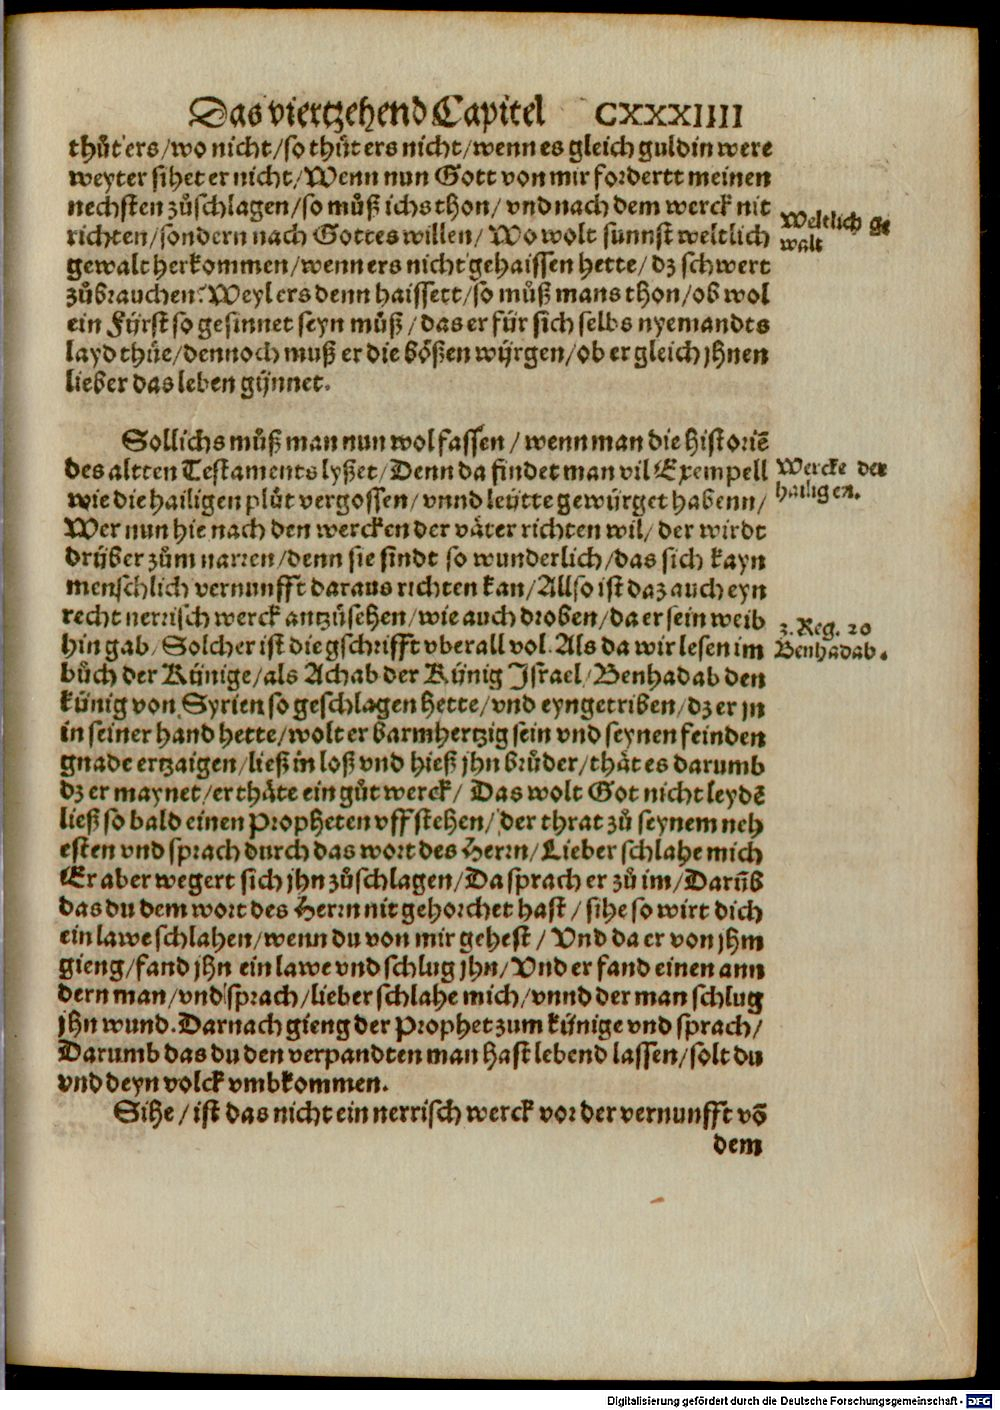 Das viertzehend Capitel CXXXIIII
thuͦt ers/wo nicht/so thuͦt ers nicht/wenn es gleich guldin were
weyter sihet er nicht/Wenn nun Gott von mir fordertt meinen
nechsten zuͦschlagen/so muͦß ichs thon/vnd nach dem werck nit
richten/sondern nach Gottes willen/Wo wolt sunnst weltlich
Weltlich ge
walt
gewalt herkommen/wenn ers nicht gehaissen hette/dz schwert
zuͦbrauchen? Weyl ers denn haissett/so muͦß mans thon/ob wol
ein Fÿrst so gesinnet seyn muͦß/das er für sich selbs nyemandts
layd thuͤe/dennoch muß er die boͤßen wÿrgen/ob er gleich jhnen
lieber das leben gÿnnet.
Sollichs muͦß man nun wol fassen/wenn man die historiē
des altten Testaments lyßet/Denn da findet man vil Exempell
Wercke der
hailigen.
wie die hailigen pluͦt vergossen/vnnd leütte gewürget habenn/
Wer nun hie nach den wercken der vaͤter richten wil/der wirdt
drÿber zuͦm narren/denn sie sindt so wunderlich/das sich kayn
menschlich vernunfft daraus richten kan/Allso ist daz auch eyn
recht nerrisch werck antzuͦsehen/wie auch droben/da er sein weib
hin gab/Solcher ist die gschrifft vberall vol. Als da wir lesen im
3. Reg. 20
Benhadab.
buͦch der Kÿnige/als Achab der Kÿnig Israel/Benhadab den
kÿnig von Syrien so geschlagen hette/vnd eyngetriben/dz er jn
in seiner hand hette/wolt er barmhertzig sein vnd seynen feinden
gnade ertzaigen/ließ in loß vnd hieß jhn bruͦder/thaͤt es darumb
dz er maynet/er thaͤte ein guͦt werck/Das wolt Got nicht leydē
ließ so bald einen Propheten vffstehen/der thrat zuͦ seynem neh
esten vnd sprach durch das wort des Herrn/Lieber schlahe mich
Er aber wegert sich jhn zuͦschlagen/Da sprach er zuͦ im/Darūb
das du dem wort des Herrn nit gehorchet hast/sihe so wirt dich
ein lawe schlahen/wenn du von mir gehest/Vnd da er von jhm
gieng/fand jhn ein lawe vnd schlug jhn/Vnd er fand einen ann
dern man/vnd sprach/lieber schlahe mich/vnnd der man schlug
jhn wund. Darnach gieng der Prophet zum kÿnige vnd sprach/
Darumb das du den verpandten man hast lebend lassen/solt du
vnd deyn volck vmbkommen.
Sihe/ist das nicht ein nerrisch werck vor der vernunfft vō
dem
Digitalisierung gefördert durch die Deutsche Forschungsgemeinschaft - DFG